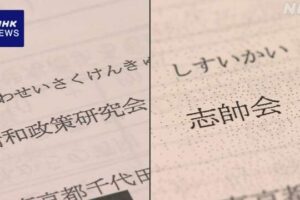 NHK
NEWS
わせいさくけんきゅ
和政策研究会
京都千代田
しすいかい
志帥会
NHK